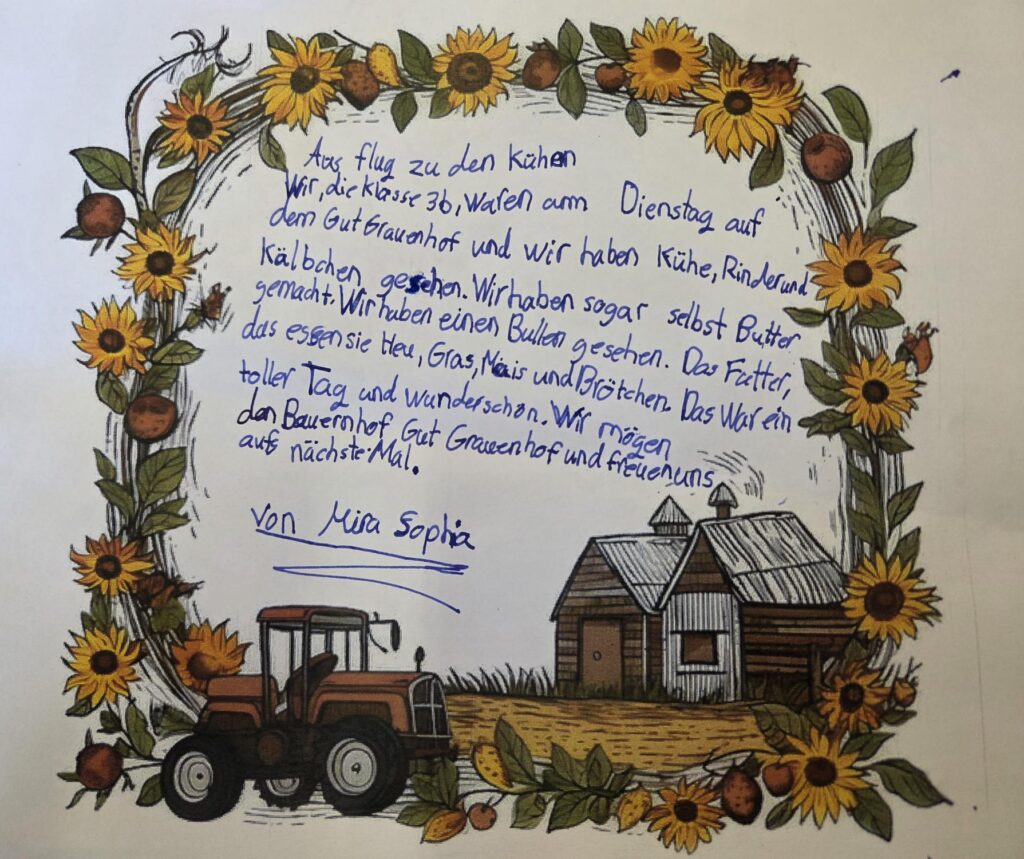 Aus flug zu den Kühen
Wir, die Klasse 3b, waren am Dienstag auf
dem Gut Grauenhof und wir haben Kühe, Rinder und
Kälbchen gesehen. Wir haben sogar selbst Butter
gemacht. Wir haben einen Bullen gesehen. Das Futter,
das essen sie Heu, Gras, Mais und Brötchen. Das War ein
toller Tag und wunderschön. Wir mögen
den Bauernhof Gut Grauenhof und freuen uns
aufs nächste Mal.
von Mira Sophia